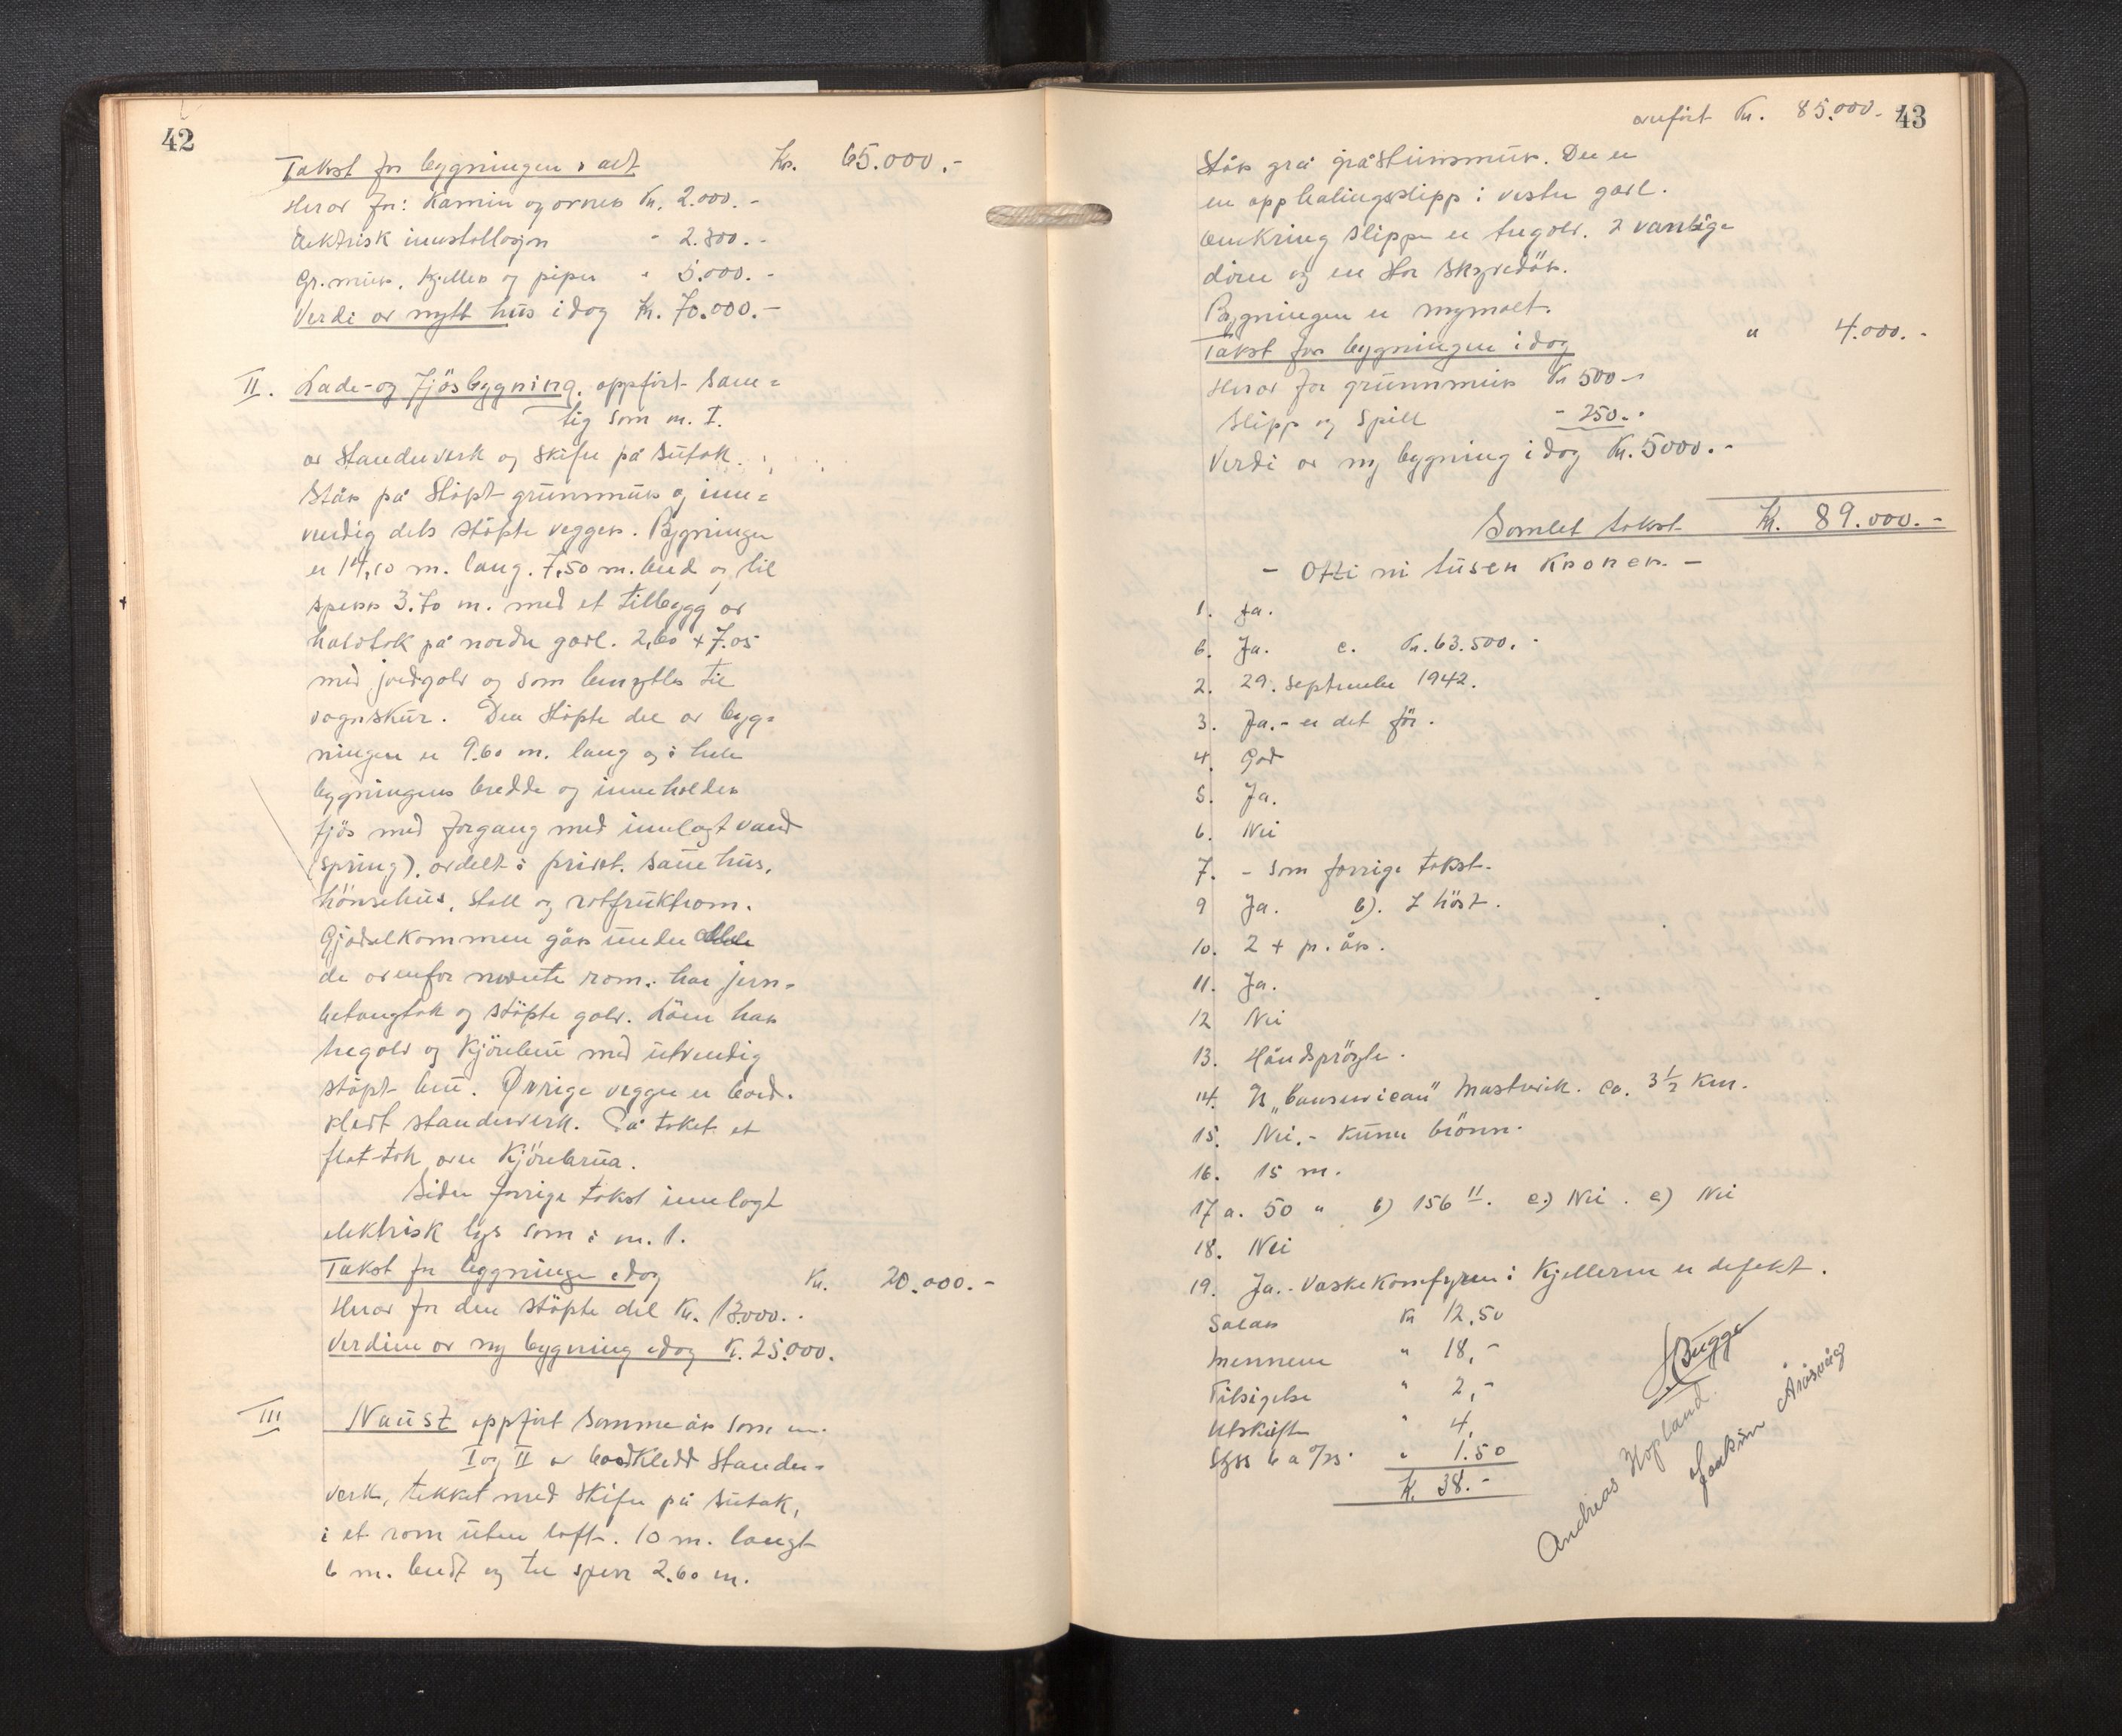 42
Takst for bygningen i alt Kr. 65.000.-
Herav for: Kamin og ovner Kr. 2.000.-
Elektrisk innstallasjon - 2.300.-
Gr.mur, Kjeller og piper " 5.000.-
Verdi av nytt hus idag Kr. 70.000.-
II. Lade- og Fjösbygning. oppfört sam=
tig som m. I.
av Standerverk og skifer på sutak.
Står på Stöpt grunnmur og inn=
vendig dels stöpte vegger. Bygningen
er 14,10 m. lang. 7,50 m. bred og til
sperr 3.70 m. med et tilbygg av
halvtak på nordre gavl. 2,60 + 7.05
med jordgolv og som benyttes til
vognskur. Den Stöpte del av byg=
ningen er 9.60 m. lang og i hele
bygningens bredde og inneholder
fjös med forgang med innlagt vand
(spring), avdelt i privet. sauehus,
hönsehus, stall og rotfruktrom.
Gjödselkommen går under
de ovenfor nevnte rom. har jern-
betongtak og stöpte golv. Löen har
tregolv og Kjörebru med utvendig
stöpt bru. Övrige vegger er bord-
kledt standerverk. På taket et
flat-tak over Kjörebrua.
Siden forrige takst innlagt
elektrisk lys som i m. 1.
Takst for bygningen idag Kr. 20.000.-
Herav for den stöpte del Kr. 13.000.-
Verdien av ny bygning idag Kr. 25.000.
III Naust oppfört samme år som m.
I og II av bordkledd Stander-
verk, tekket med Skifer på sutak,
i et rom uten loft. 10 m. langt
6 m. bredt og til sperr 2.60 m.
43
overfört Kr. 85.000.-
Står på gråsteinsmur. Der er
en opphalingsslipp i vestre gavl.
Omkring slippen er tregolv. 2 vanlige
dörer og en stor skyvedör.
Bygningen er nymalt.
Takst for bygningen idag " 4.000.-
Herav for grunnmur Kr 500.-
Slipp og Spill - 250.-
Verdi av ny bygning idag Kr. 5000.-
Samlet takst Kr. 89.000.-
- Otti ni tusen Kroner. -
1. Ja.
6. Ja. c. Kr. 63.500.-
2. 29. September 1942.
3. Ja. - er det för.
4. God
5. Ja.
6. Nei
7. - som forrige takst.
9 Ja. b). I höst.
10. 2 + pr. år.
11. Ja.
12 Nei
13. Håndspröyte.
14. Mastrevik. ca. 3½ Km.
15. Nei. - Kunn brönn.
16. 15 m.
17 a. 50 " b) 156 ". c) Nei. e) Nei
18. Nei
19. Ja. - Vaskekomfyren i Kjelleren er defekt.
Salær Kr 12,50
Mennene " 18,-
Tilsigelse " 2,-
Utskrifter " 4,
" 1.50
Kr. 38.-
Bugge
Andreas Hopland
Joakim Aråsvåg